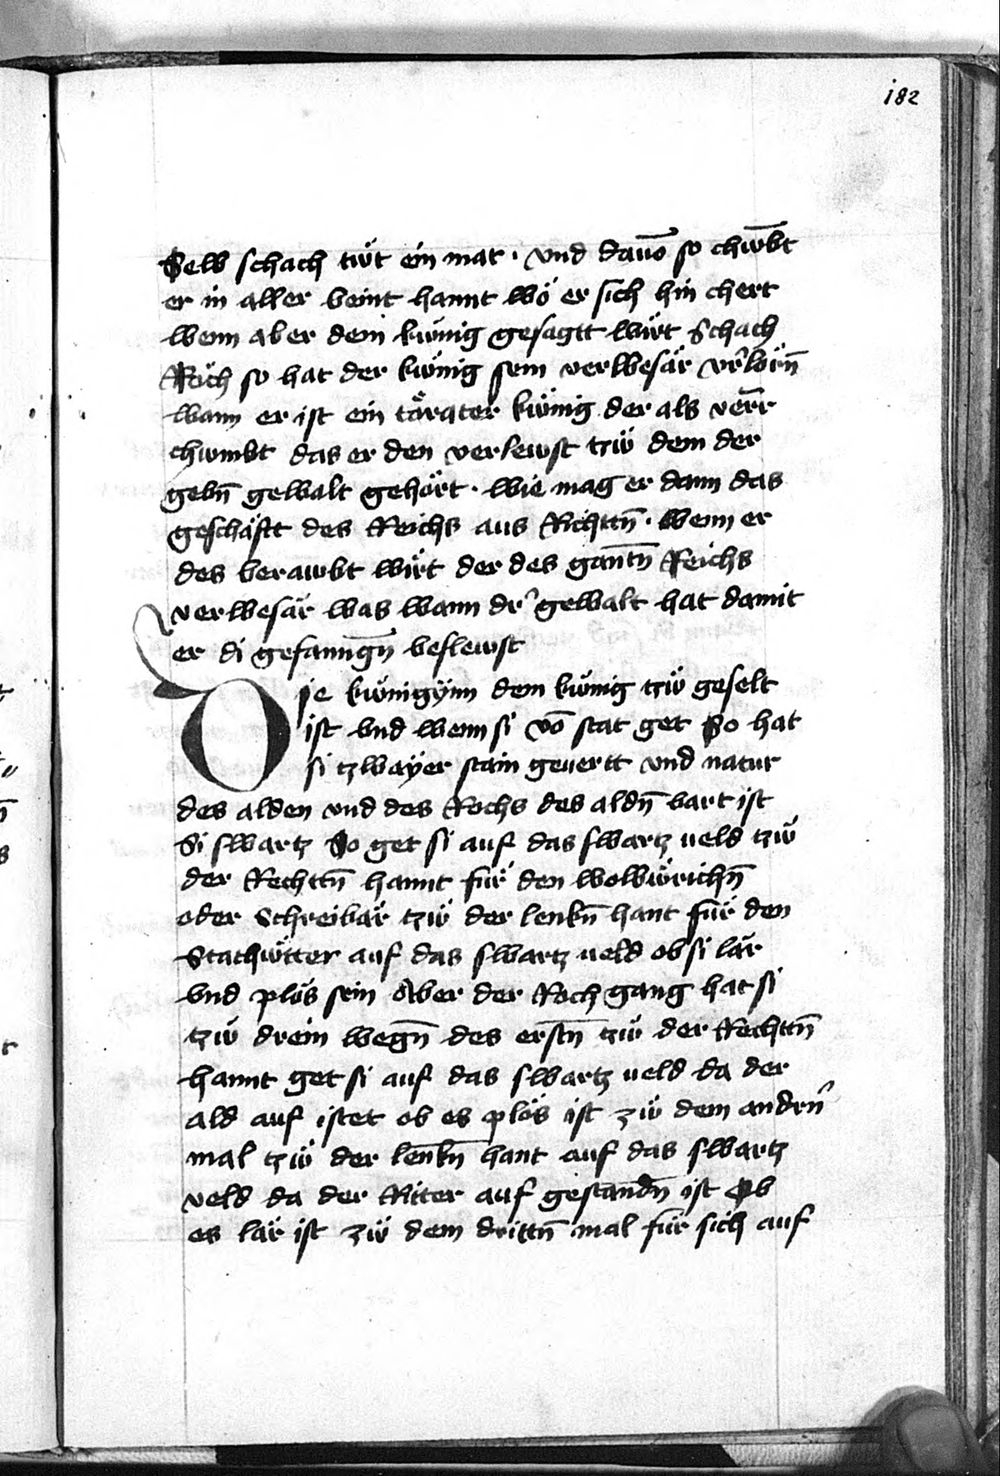 182
Selb schach twͤt ein mat · vnd dauō so chwm̄bt
er in aller veint hannt wo er sich hin chert
wenn aber dem kwͤnig gesagtt wirt Schach
Roch so hat der kwͤnig sein verwesär vͦlorn̄
wann er ist ein tärater kwͤnig der als verr̄
chwmbt das er den verlewst tzwͤ dem der
gebn̄ gewalt gehört · wie mag er dann das
geschäftt des Reichs aus Richttn̄ · wenn er
des berawbt wirt der des gantn̄ Reichs
verwesär was wann dr̄ gewalt hat damit
er di gefanngn̄ beslewst
Die kwͤnigÿnn dem kwͤnig tzwͤ geselt
ist vnd wenn si vō stat get So hat
si tzwaÿer stain geuertt vnd natur
des alden vnd des Rochs des aldn̄ vart ist
Si swartz So get si auf das swartz ueld tzwͤ
der Rechttn̄ hannt für den wolwürichn̄
oder Schreibär tzwͤ der lenkn̄ hant für den
Stathwͤtter auf das swartz ueld ob si lär
vnd plös sein Aber der Roch gang hat si
tzwͤ drein wegn̄ des erstn̄ tzwͤ der Rechttn̄
hannt get si auf das swartz ueld da der
ald auf istet ob es plös ist zwͤ dem andrn̄
mal tzwͤ der lenkn̄ hant auf das swartz
veld da der Ritter auf gestandn̄ ist Ob
es lär ist zwͤ dem drittn̄ mal für sich auf